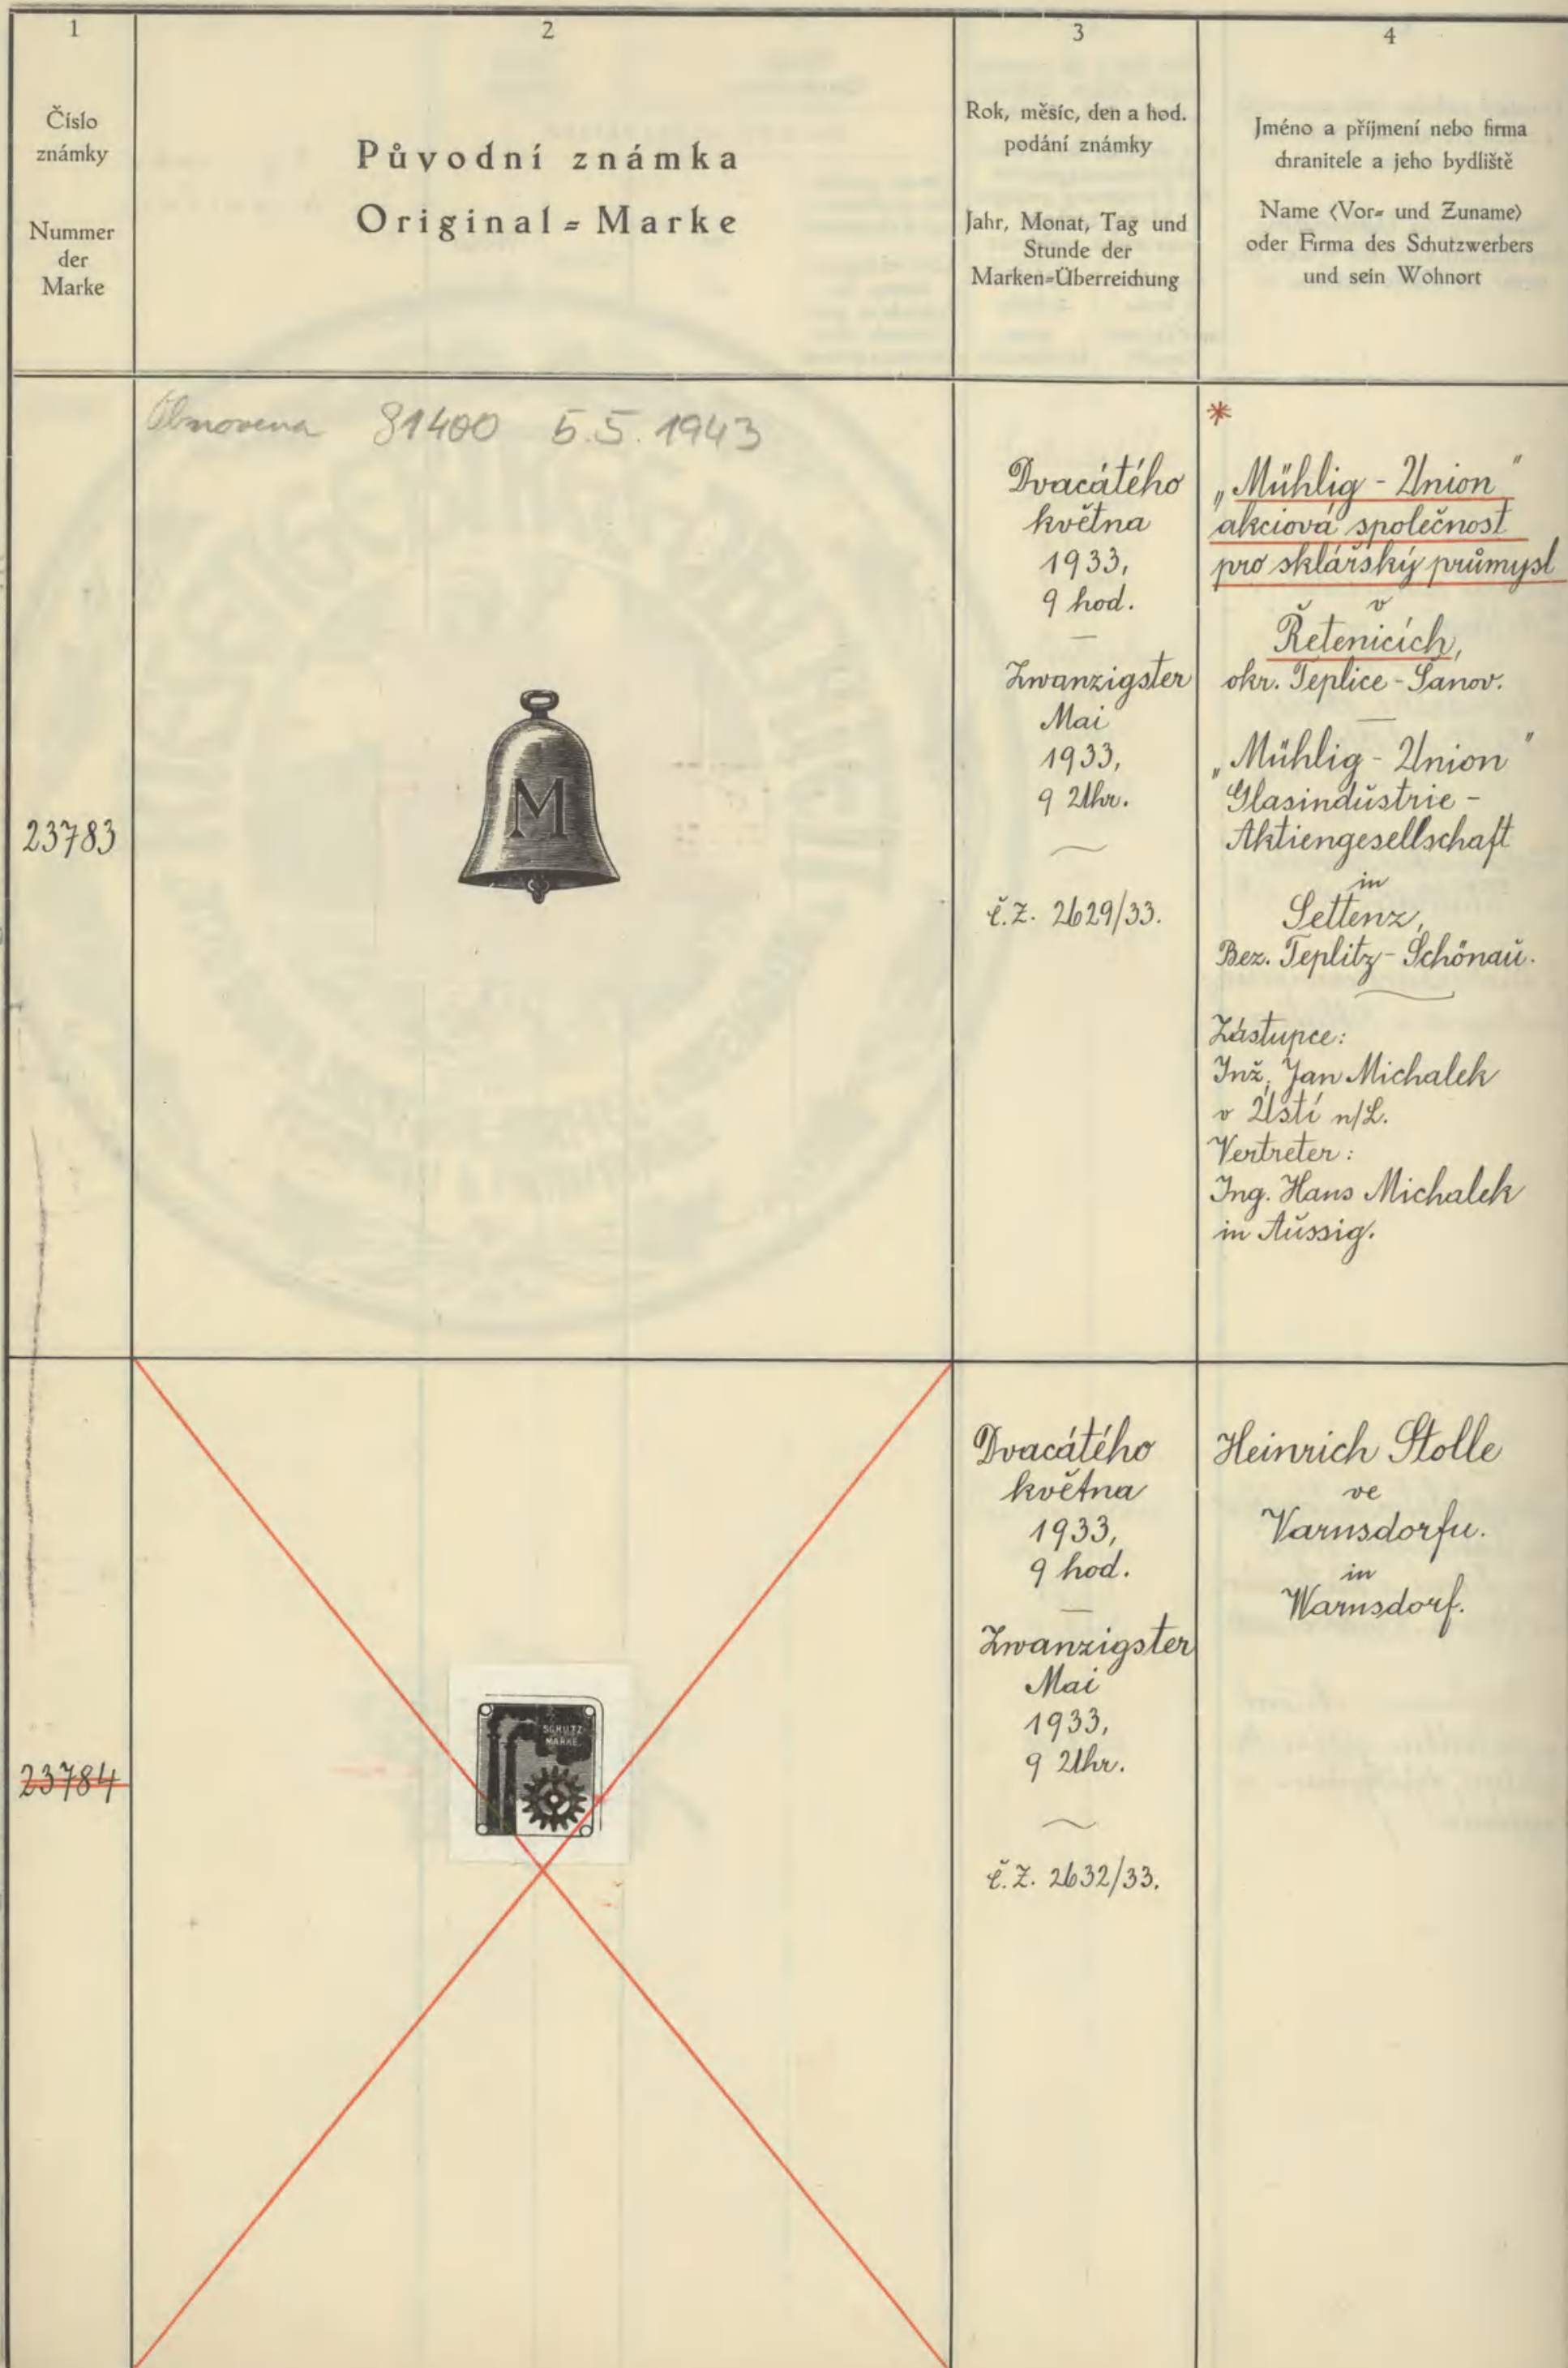 1
Číslo
známky
Nummer
der
Marke
2
Původní známka
Original=Marke
3
Rok, měsíc, den a hod.
podání známky
Jahr, Monat, Tag und
Stunde der
Marken=Überreichung
4
Jméno a příjmení nebo firma
chranitele a jeho bydliště
Name (Vor= und Zuname)
oder Firma des Schutzwerbers
und sein Wohnort
23783
Obnovena 81400 5.5.1943
M
Dvacátého
května
1933,
9 hod.
—
Zwanzigster
Mai
1933,
9 Uhr.
č.Z. 2629/33.
*
„Mühlig - Union"
akciová společnost
pro sklářský průmysl
v
Řetenicích,
okr. Teplice - Šanov.
—
„Mühlig - Union"
Glasindŭstrie -
Aktiengesellschaft
in
Settenz,
Bez. Teplitz - Schönaŭ.
Zástupce:
Inž. Jan Michalek
v Ústí n/L.
Vertreter:
Ing. Hans Michalek
in Aŭssig.
23784
SCHUTZ
MARKE
Dvacátého
května
1933,
9 hod.
—
Zwanzigster
Mai
1933,
9 Uhr.
č.Z. 2632/33.
Heinrich Stolle
ve
Varnsdorfu.
in
Warnsdorf.